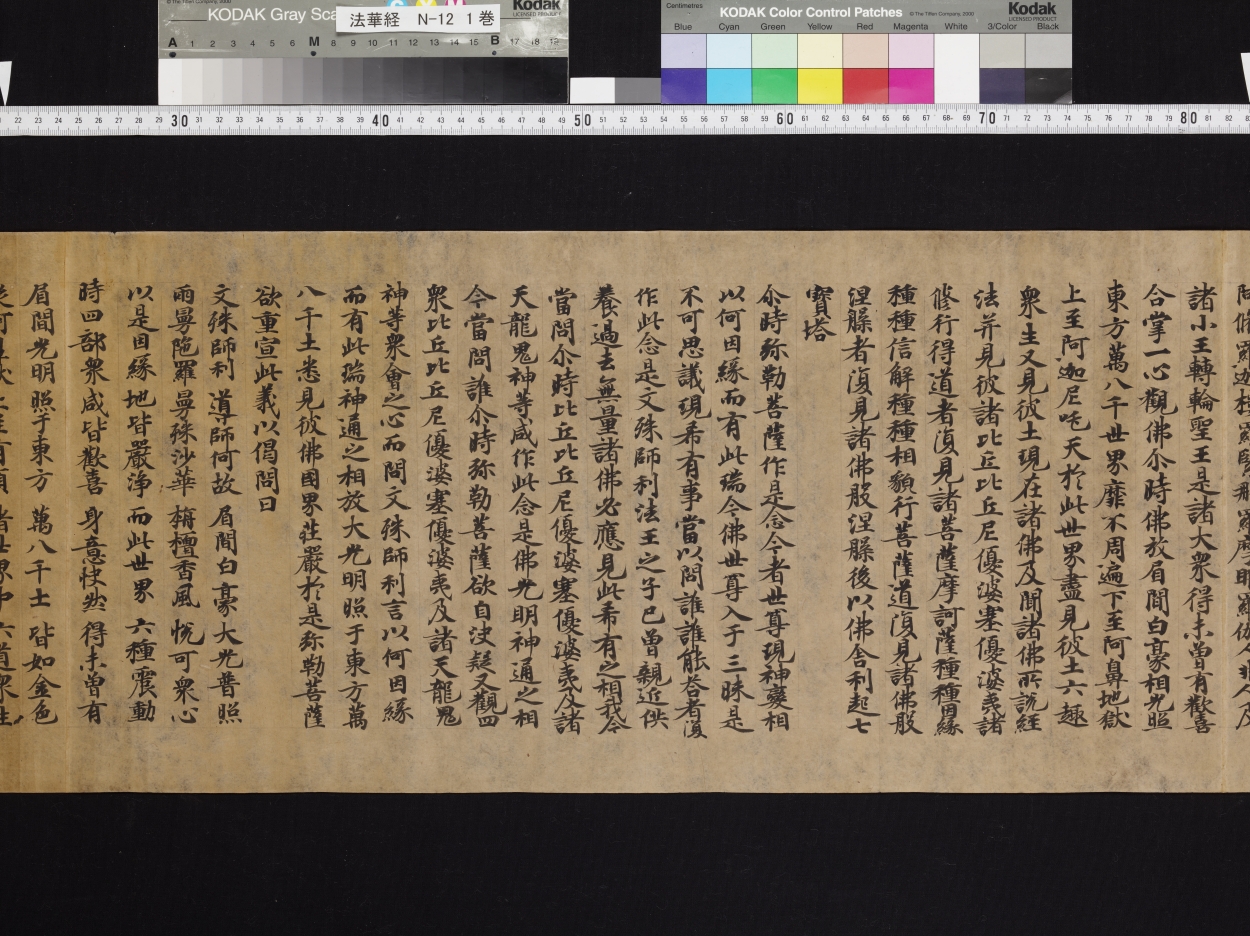 KODAK Gray Sca
© The Tiffen Company, 2000
Kodak
LICENSED PRODUCT
法華経 N-12 1巻
A 1 2 3 4 5 6 M 8 9 10 11 12 13 14 15 B 17 18 19
Centimetres
KODAK Color Control Patches
© The Tiffen Company, 2000
Kodak
LICENSED PRODUCT
Blue Cyan Green Yellow Red Magenta White 3/Color Black
22 23 24 25 26 27 28 29 30 31 32 33 34 35 36 37 38 39 40 41 42 43 44 45 46 47 48 49 50 51 52 53 54 55 56 57 58 59 60 61 62 63 64 65 66 67 68 69 70 71 72 73 74 75 76 77 78 79 80 81 82
諸小王轉輪聖王是諸大衆得未曾有歡喜
合掌一心觀佛尒時佛放眉間白豪相光照
東方萬八千世界靡不周遍下至阿鼻地獄
上至阿迦尼吒天於此世界盡見彼土六趣
衆生又見彼土現在諸佛及聞諸佛所說經
法并見彼諸比丘比丘尼優婆塞優婆夷諸
修行得道者復見諸菩薩摩訶薩種種因緣
種種信解種種相貌行菩薩道復見諸佛般
涅槃者復見諸佛般涅槃後以佛舍利起七
寶塔
尒時弥勒菩薩作是念今者世尊現神變相
以何因緣而有此瑞今佛世尊入于三昧是
不可思議現希有事當以問誰誰能答者復
作此念是文殊師利法王之子已曾親近供
養過去無量諸佛必應見此希有之相我今
當問尒時比丘比丘尼優婆塞優婆夷及諸
天龍鬼神等咸作此念是佛光明神通之相
今當問誰尒時弥勒菩薩欲自決疑又觀四
衆比丘比丘尼優婆塞優婆夷及諸天龍鬼
神等衆會之心而問文殊師利言以何因緣
而有此瑞神通之相放大光明照于東方萬
八千土悉見彼佛國界莊嚴於是弥勒菩薩
欲重宣此義以偈問曰
文殊師利 導師何故 眉間白豪 大光普照
雨曼陁羅 曼殊沙華 栴檀香風 悅可衆心
以是因緣 地皆嚴淨 而此世界 六種震動
時四部衆 咸皆歡喜 身意快然 得未曾有
眉間光明 照于東方 萬八千土 皆如金色